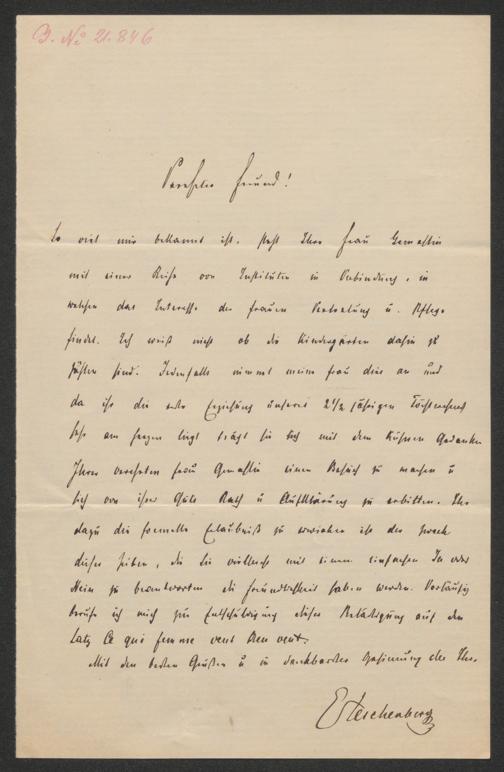 J. No 21.846
Verehrter Freund!
So viel mir bekannt ist, steht Ihre Frau Gemahlin
mit einer Reihe von Instituten in Verbindung, in
welchen das Interesse der Frauen Vertretung u. Pflege
findet. Ich weiß nicht ob die Kindergärten dahin zu
zählen sind. Jedenfalls nimmt meine Frau dies an und
da ihr die erste Erziehung unseres 2 1/2 jährigen Töchterchens
sehr am Herzen liegt trägt sie sich mit dem kühnen Gedanken
Ihrer verehrten Frau Gemahlin einen Besuch zu machen u
sich von ihrer Güte Rath u Aufklärung zu erbitten. Ihr
dazu die formelle Erlaubniß zu erwirken ist der Zweck
dieser Zeilen, die Sie vielleicht mit einem einfachen Ja oder
Nein zu beantworten die Freundlichkeit haben werden. Vorläufig
berufe ich mich zur Entschuldigung dieser Belästigung auf den
Satz Ce que femme veut Dieu veut.
Mit den besten Grüßen u in dankbarster Gesinnung der Ihre